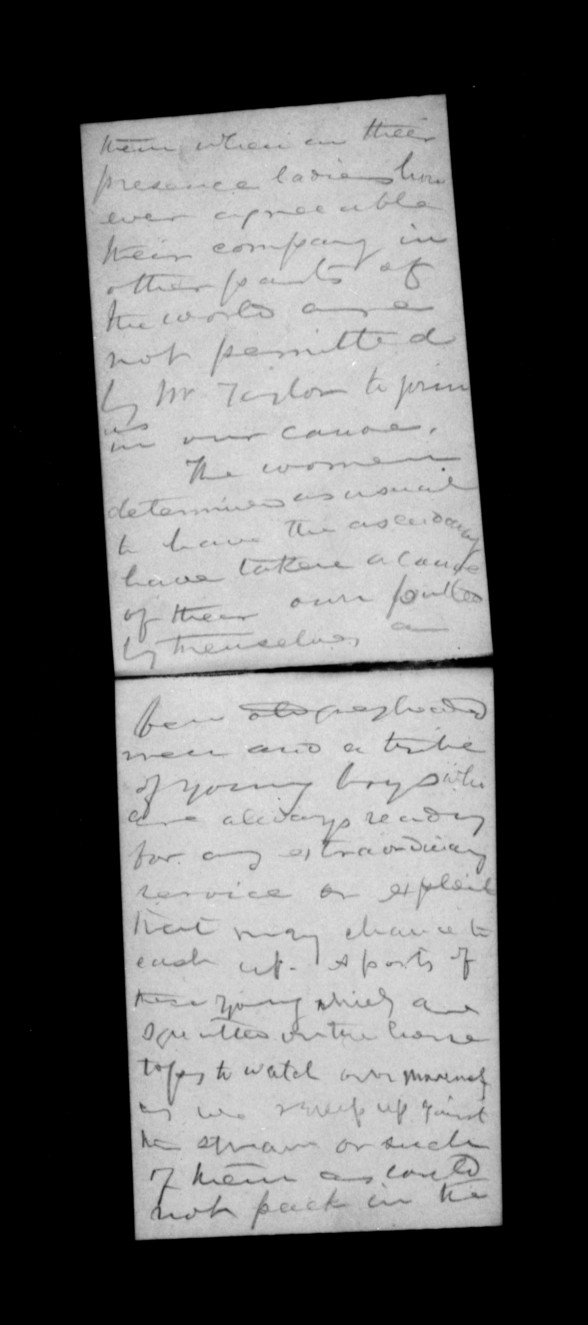 them, when in their
presence ladies how
ever agreeable
their company in
other parts of
the world are
not permitted
by Mr Taylor to join
us
in our canoe.
The women
determined as usual
to have the ascendancy
have taken a canoe
of their own pulled
by themselves a
few old grey headed
men and a tribe
of young boys who
are always ready
for any extraordinary
service or exploit
that may chance to
cast up. sports of
these young which are
squatted on the house
tops to watch our
as we sweep up against
the stream or such
of them as could
not pack in the